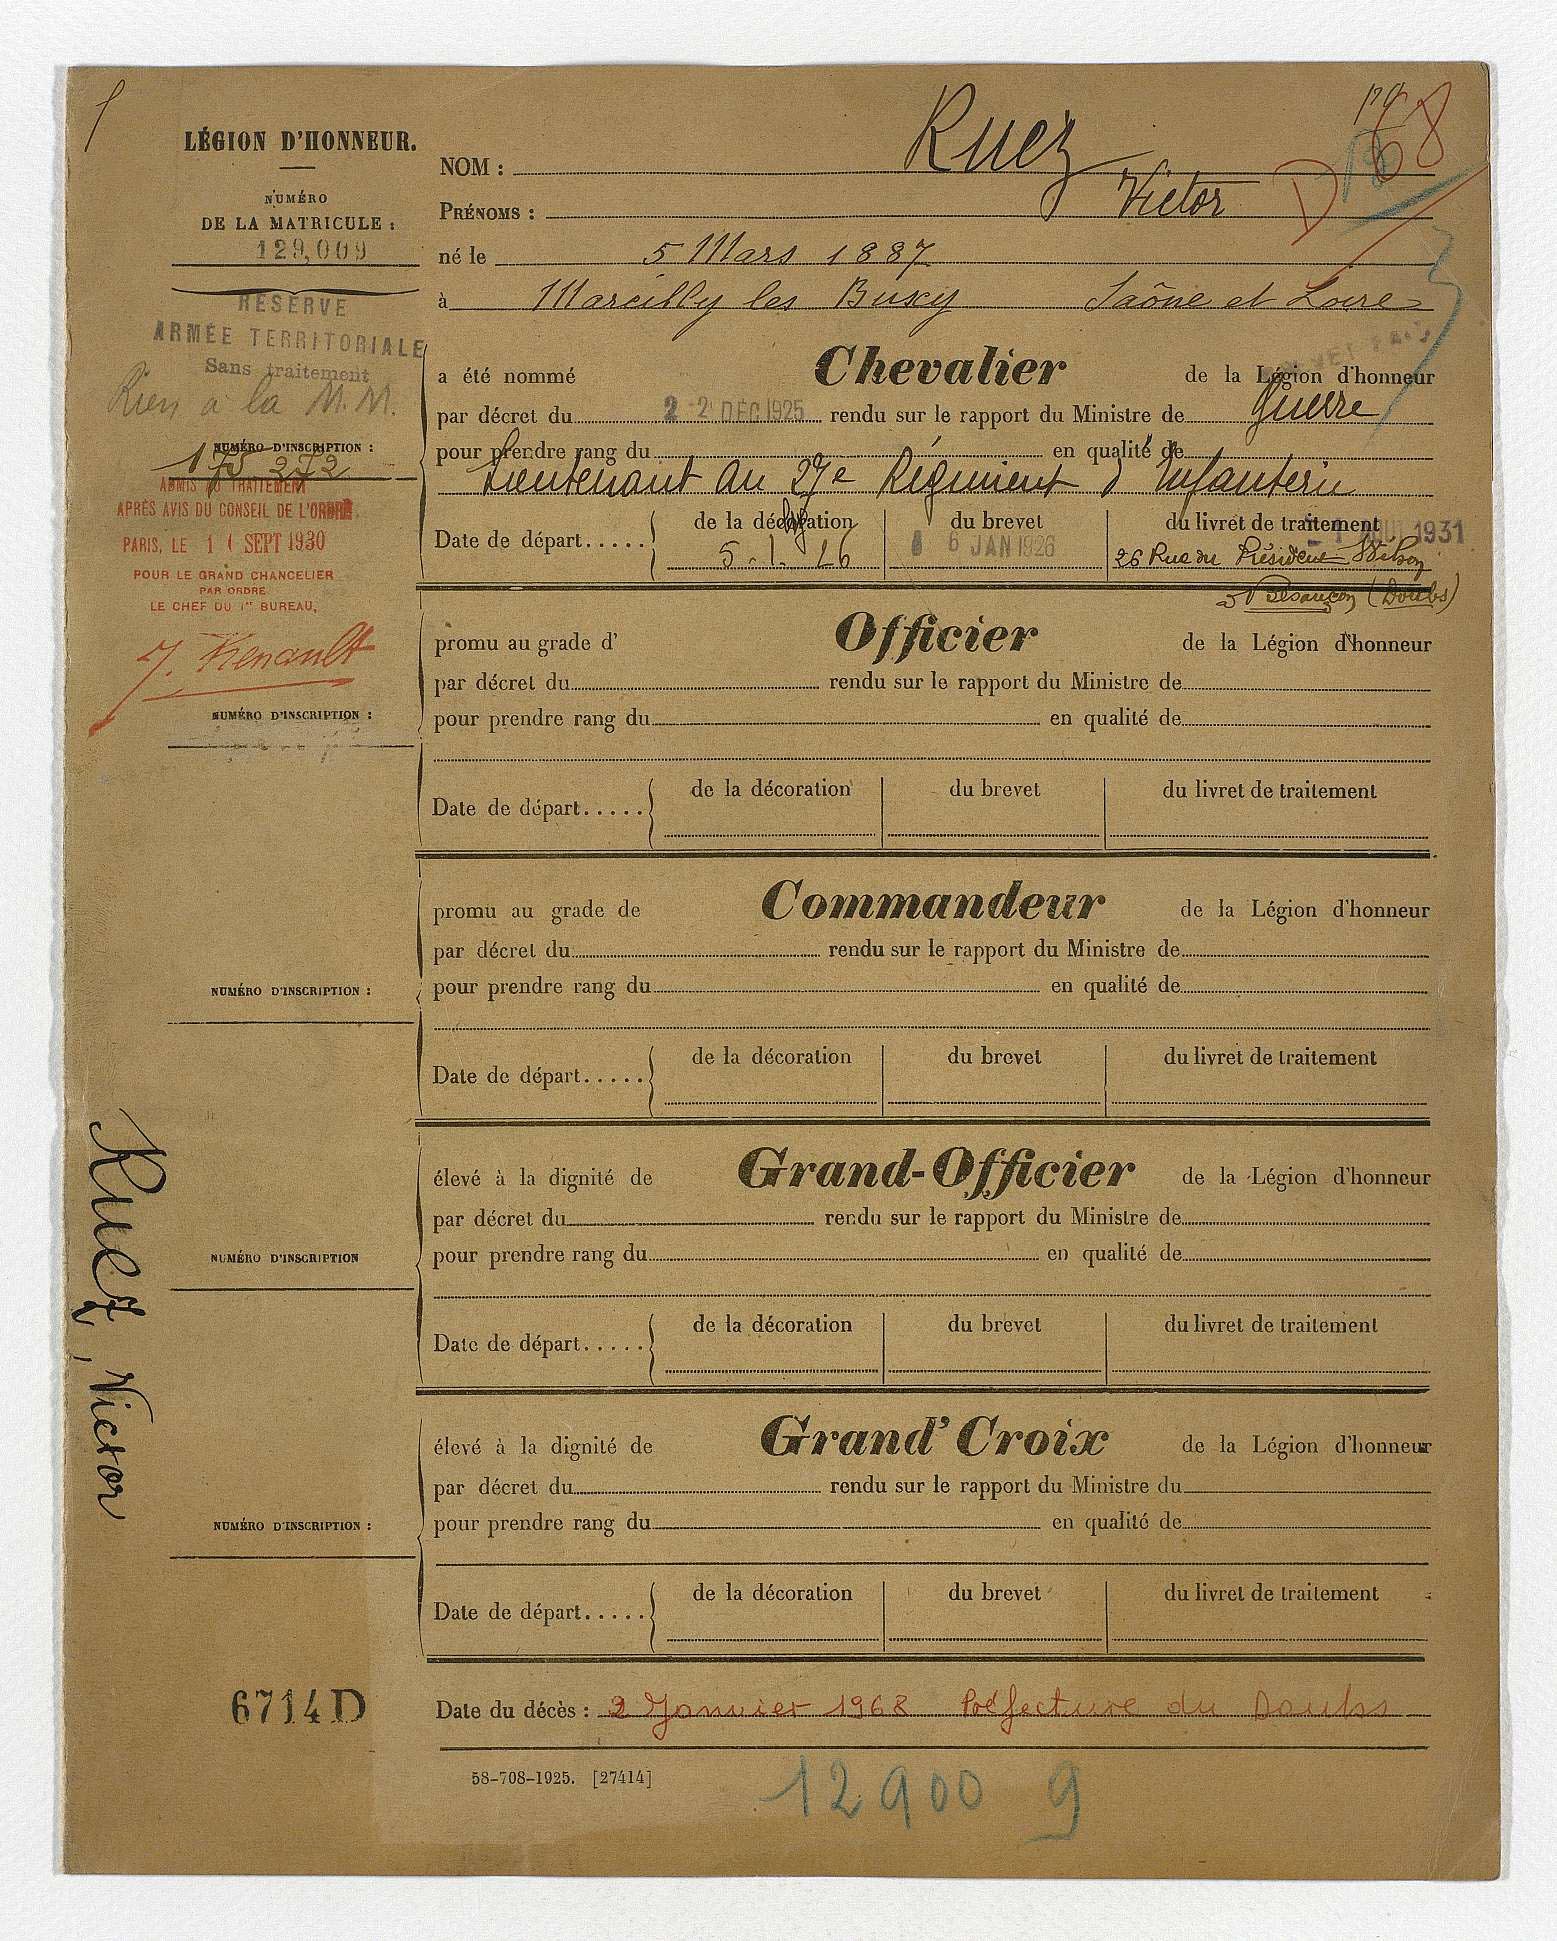 LÉGION D'HONNEUR.
NUMÉRO
DE LA MATRICULE :
129,009
RÉSERVE
ARMÉE TERRITORIALE
Sans traitement
Rien à la M.M.
NUMÉRO D'INSCRIPTION :
175 272
ADMIS AU TRAITEMENT
APRÈS AVIS DU CONSEIL DE L'ORDRE
PARIS, LE 1 1 SEPT 1930
POUR LE GRAND CHANCELIER
PAR ORDRE
LE CHEF DU 1er BUREAU,
J. Renault
NOM : Ruez
D 68
PRÉNOMS : Victor
né le 5 Mars 1887
à Marcilly les Buxy Saône et Loire
a été nommé Chevalier de la Légion d'honneur
par décret du 2 2 DÉC 1925 rendu sur le rapport du Ministre de Guerre
pour prendre rang du en qualité de
Lieutenant au 27e Régiment d'Infanterie
Date de départ..... de la décoration du brevet du livret de traitement
5. 1. 26 6 JAN 1926 1931
26 Rue du Président Wilson
à Besançon (Doubs)
promu au grade d' Officier de la Légion d'honneur
par décret du rendu sur le rapport du Ministre de
NUMÉRO D'INSCRIPTION : pour prendre rang du en qualité de
Date de départ..... de la décoration du brevet du livret de traitement
promu au grade de Commandeur de la Légion d'honneur
par décret du rendu sur le rapport du Ministre de
NUMÉRO D'INSCRIPTION : pour prendre rang du en qualité de
Date de départ..... de la décoration du brevet du livret de traitement
élevé à la dignité de Grand-Officier de la Légion d'honneur
par décret du rendu sur le rapport du Ministre de
NUMÉRO D'INSCRIPTION pour prendre rang du en qualité de
Date de départ..... de la décoration du brevet du livret de traitement
Ruez, Victor
élevé à la dignité de Grand'Croix de la Légion d'honneur
par décret du rendu sur le rapport du Ministre du
NUMÉRO D'INSCRIPTION : pour prendre rang du en qualité de
Date de départ..... de la décoration du brevet du livret de traitement
6714D
Date du décès : 2 Janvier 1968 Préfecture du Doubs
58-708-1925. [27414]
12900 9